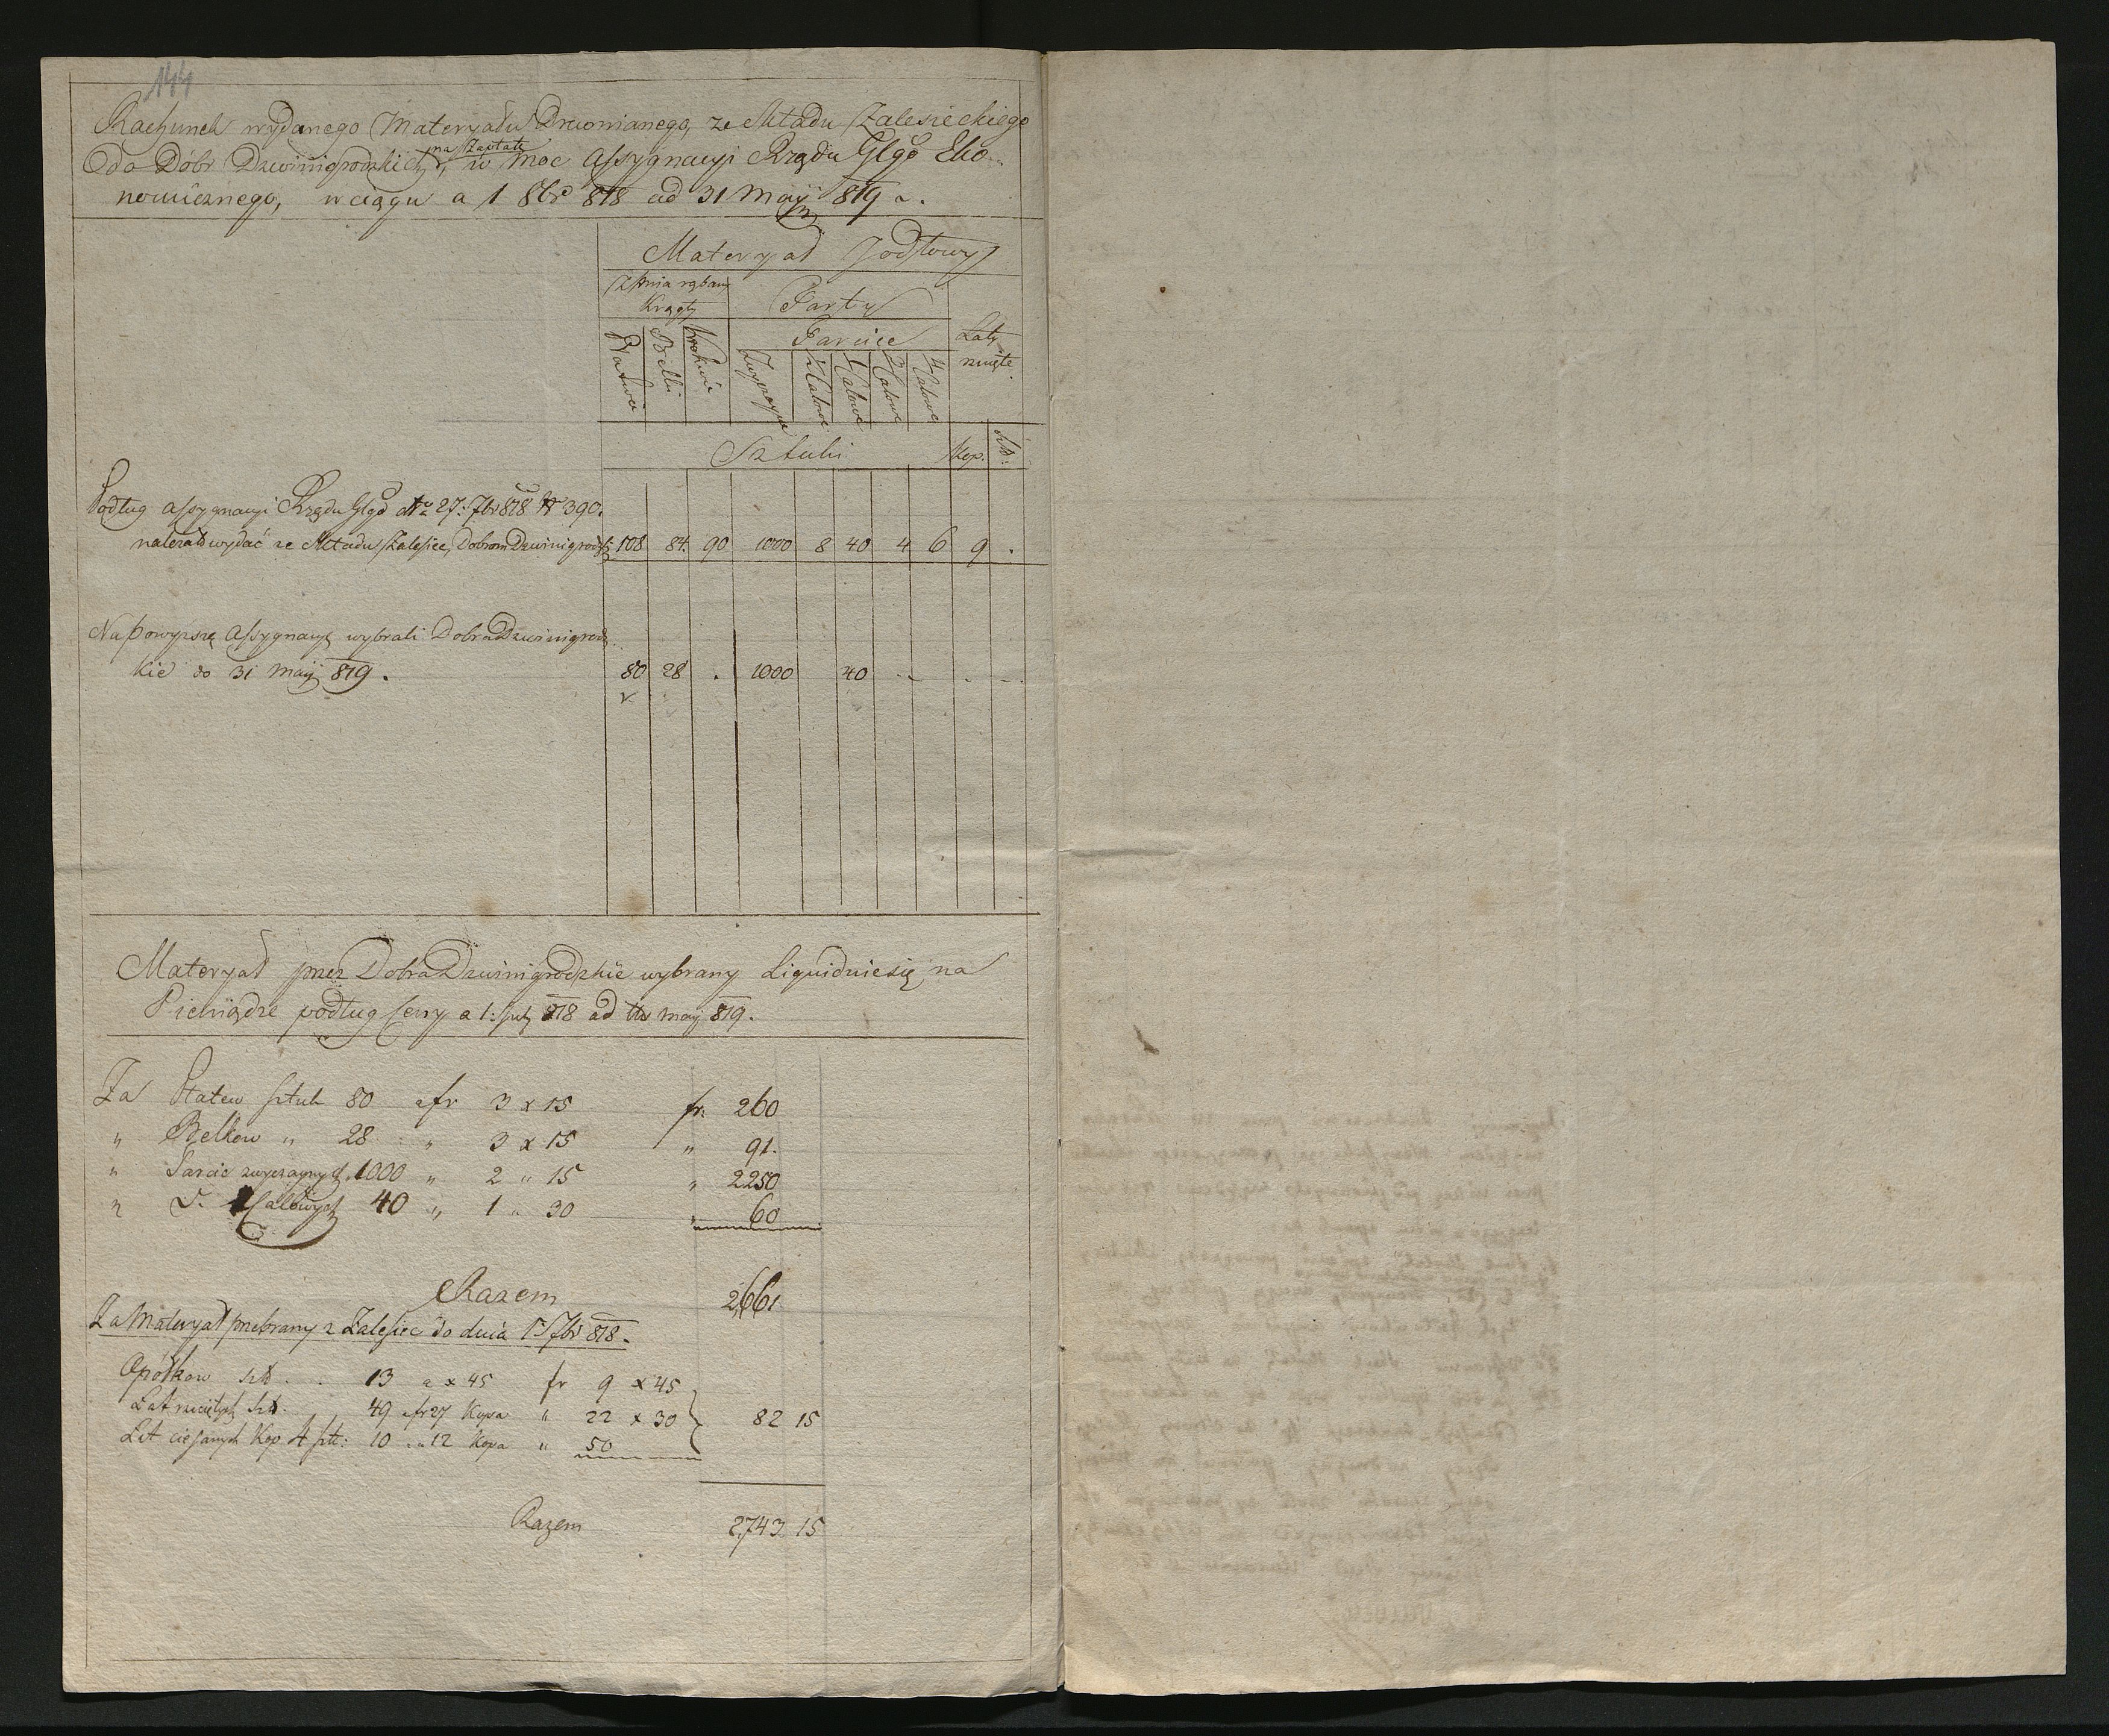 144
Rachunek wydanego Materyału Drewnianego, ze Składu Zalesieckiego
do Dóbr Dzwinigrodzkich, na Zapłatę w moc Assygnacyi Rządu Glgo Eko-
nomicznego, w ciągu a 1 8br 818 ad 31 Maij 819.
Materyał Jodłowy
Z pnia rąbany
Krągły
Tarty
Tarcice
Łaty
rznięte
Platwi
Belki
Krokwie
Zwyczayne
½ Calowe
1 Calowe
3 Calowe
4 Calowe
Sztuki
Kop.
Szt.
Podług Assygnacyi Rządu Glgo dto 27: 7br 818 N 390.
należało wydać ze Składu Zalesiec, Dobrom Dzwinigrodz: 108 84. 90 1000 8 40 4 6 9 .
Na powyższą Assygnacyę wybrali Dobra Dzwinigrodz
kie do 31 Maij 819. 80 28 . 1000 40 - . -
Materyał przez Dobra Dzwinigrodzkie wybrany Liquiduie się na
Pieniądze podług Ceny a 1: July 818 ad maij 819.
Za Platew sztuk 80 a fr 3 x 15 fr. 260
" Belkow " 28 " 3 x 15 " 91.
" Tarcic zwyczaynych 1000 " 2 " 15 " 2250
" D. 1 Calowych 40 " 1 " 30 " 60
Razem 2,661
Za Materyał przebrany z Zalesiec do dnia 1 7br 818.
Opółkow szt . . 13 a x 45 fr 9 x 45
Łat rzniętych szt. 49 a fr 27 Kopa " 22 x 30 82 15
Łat ciesanych Kop 4 szt: 10 " 12 Kopa " 50
Razem 2,743 15